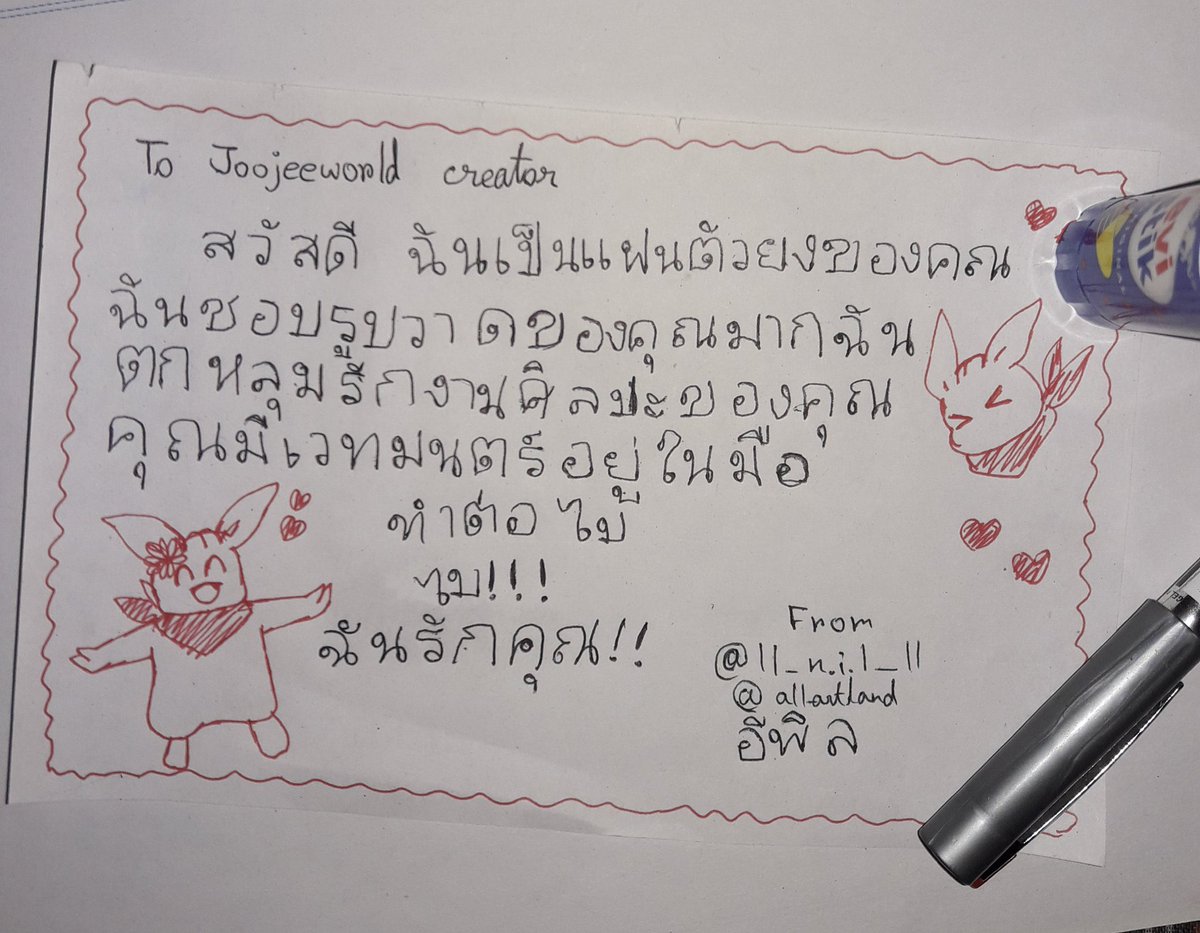 To Joojeeworld creator
สวัสดี ฉันเป็นแฟนตัวยงของคุณ
ฉันชอบรูปวาดของคุณมากฉัน
ตกหลุมรักงานศิลปะของคุณ
คุณมีเวทมนตร์อยู่ในมือ
ทำต่อ ไป
ไป!!!
ฉันรักคุณ!!
From
@ll_n.i.l_ll
@allartland
อีพิล